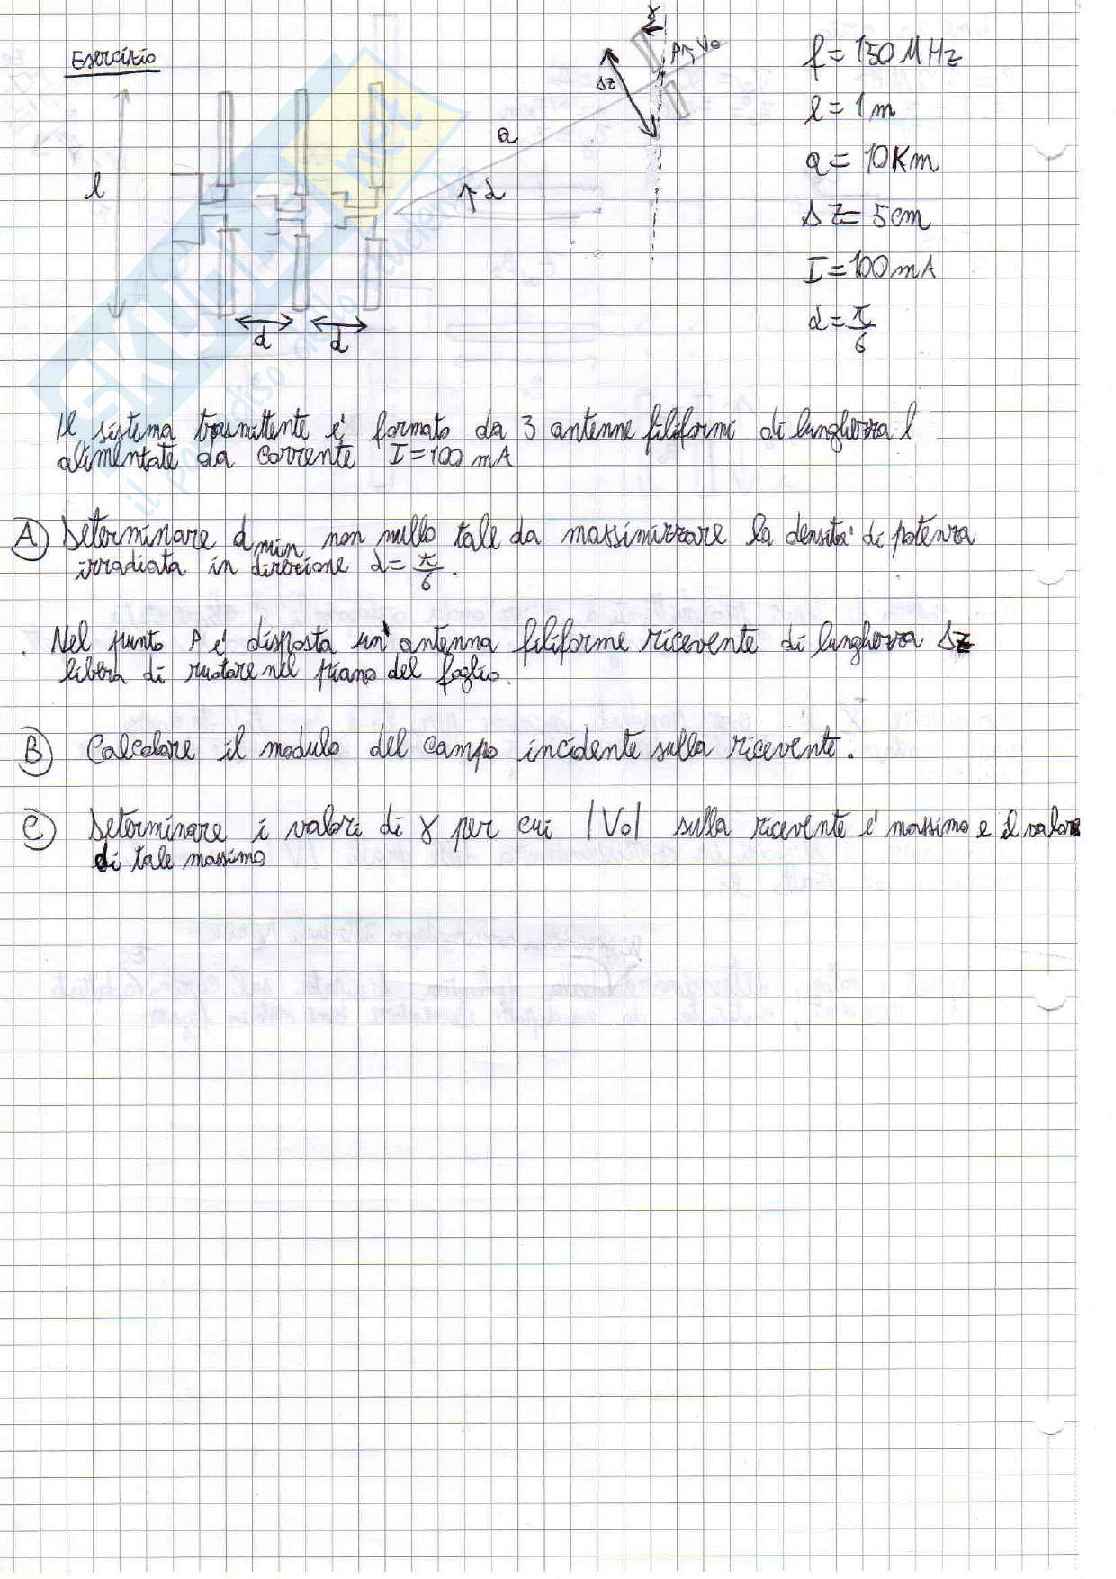 Esercizio
f = 150 MHz
l = 1 m
a = 10 Km
Δz = 5 cm
I = 100 mA
α = π/6
l
d
d
a
α
Δz
γ
P
Vo
SKUOLA.net
Il sistema trasmittente è formato da 3 antenne filiformi di lunghezza l
alimentate da corrente I = 100 mA
A) Determinare dmin non nullo tale da massimizzare la densità di potenza
irradiata in direzione α = π/6.
. Nel punto P è disposta un'antenna filiforme ricevente di lunghezza Δz
libera di ruotare nel piano del foglio.
B) Calcolare il modulo del campo incidente sulla ricevente.
C) Determinare i valori di γ per cui |Vo| sulla ricevente è massimo e il valore
di tale massimo